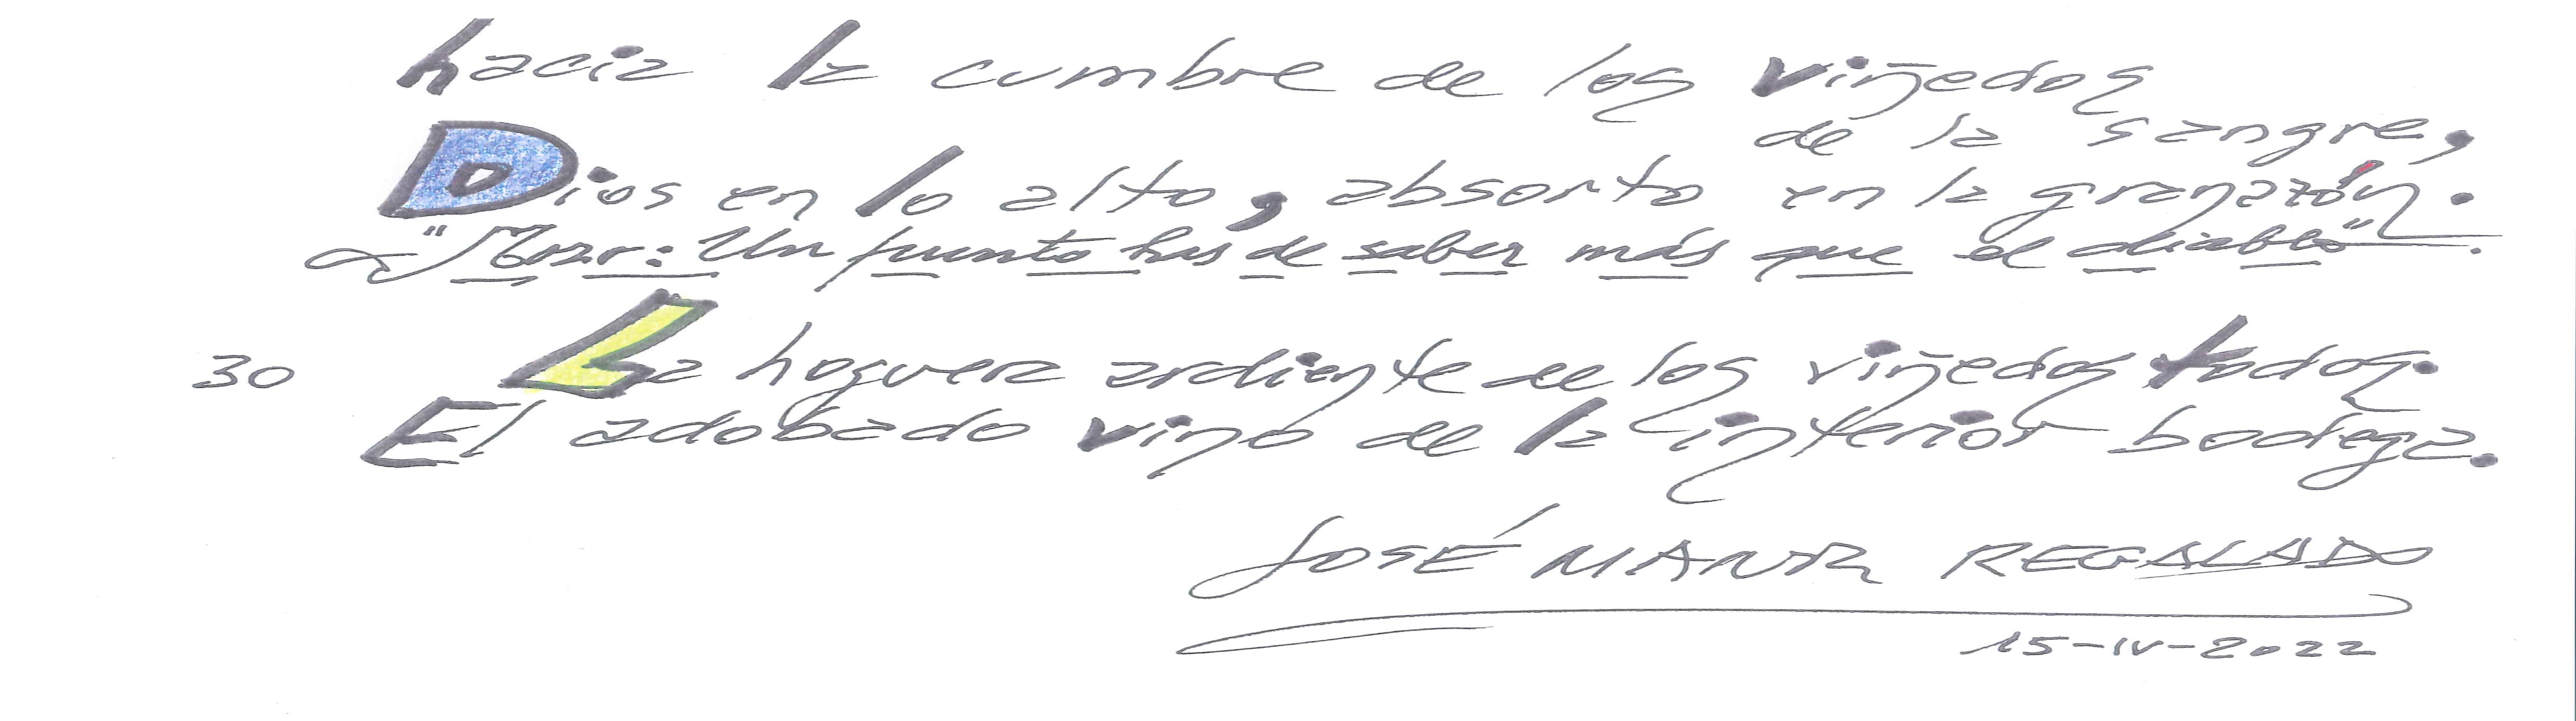 hacia la cumbre de los viñedos
de la sangre,
Dios en lo alto, absorto en la granazón.
"Mozar: Un punto has de saber más que el diablo".
30 La hoguera ardiente de los viñedos todos.
El adobado vino de la interior bodega.
JOSÉ MANUEL REGALADO
15-IV-2022